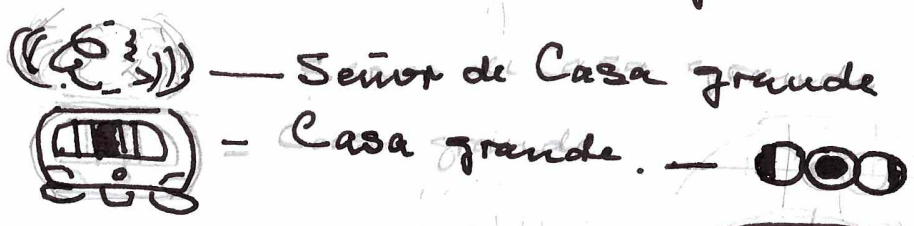 — Señor de Casa grande
- Casa grande. —